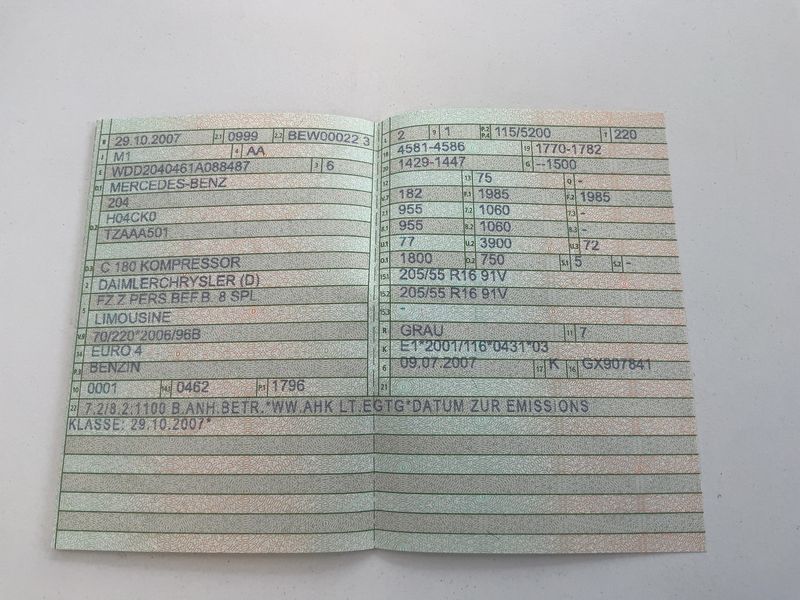 B 29.10.2007 2.1 0999 2.2 BEW00022 3
J M1 4 AA
E WDD2040461A088487 3 6
D.1 MERCEDES-BENZ
204
D.2 H04CK0
TZAAA501
D.3 C 180 KOMPRESSOR
2 DAIMLERCHRYSLER (D)
5 FZ.Z.PERS.BEF.B. 8 SPL.
LIMOUSINE
V.9 70/220*2006/96B
14 EURO 4
P.3 BENZIN
10 0001 14.1 0462 P.1 1796
22 7.2/8.2:1100 B.ANH.BETR.*WW.AHK LT.EGTG*DATUM ZUR EMISSIONS
KLASSE: 29.10.2007*
L 2 9 1 P.2 P.4 115/5200 T 220
18 4581-4586 19 1770-1782
20 1429-1447 G --1500
12 - 13 75 Q -
V.7 182 F.1 1985 F.2 1985
7.1 955 7.2 1060 7.3 -
8.1 955 8.2 1060 8.3 -
U.1 77 U.2 3900 U.3 72
O.1 1800 O.2 750 S.1 5 S.2 -
15.1 205/55 R16 91V
15.2 205/55 R16 91V
15.3 -
R GRAU 11 7
K E1*2001/116*0431*03
6 09.07.2007 17 K 16 GX907841
21